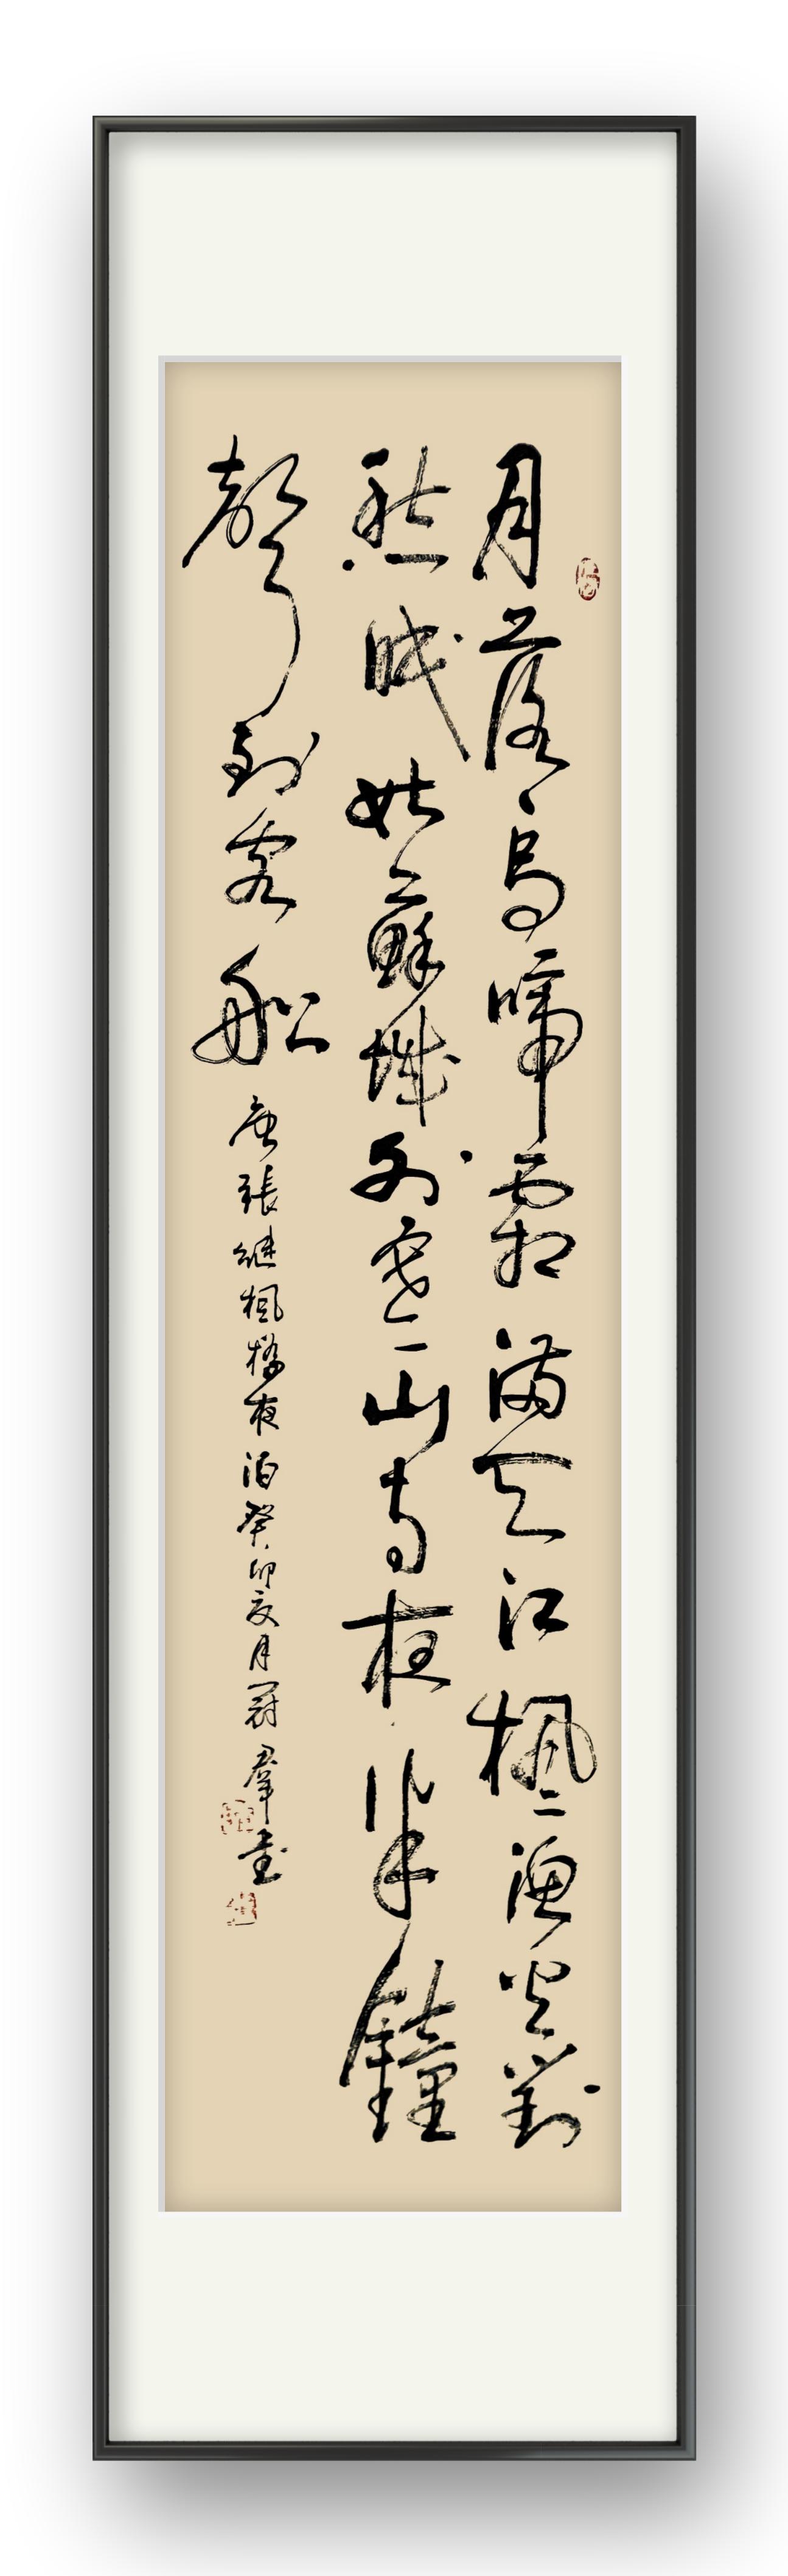 月落烏啼霜滿天江楓漁火對
愁眠姑蘇城外寒山寺夜半鐘
聲到客船
唐張继楓橋夜泊癸卯夏月冠群書